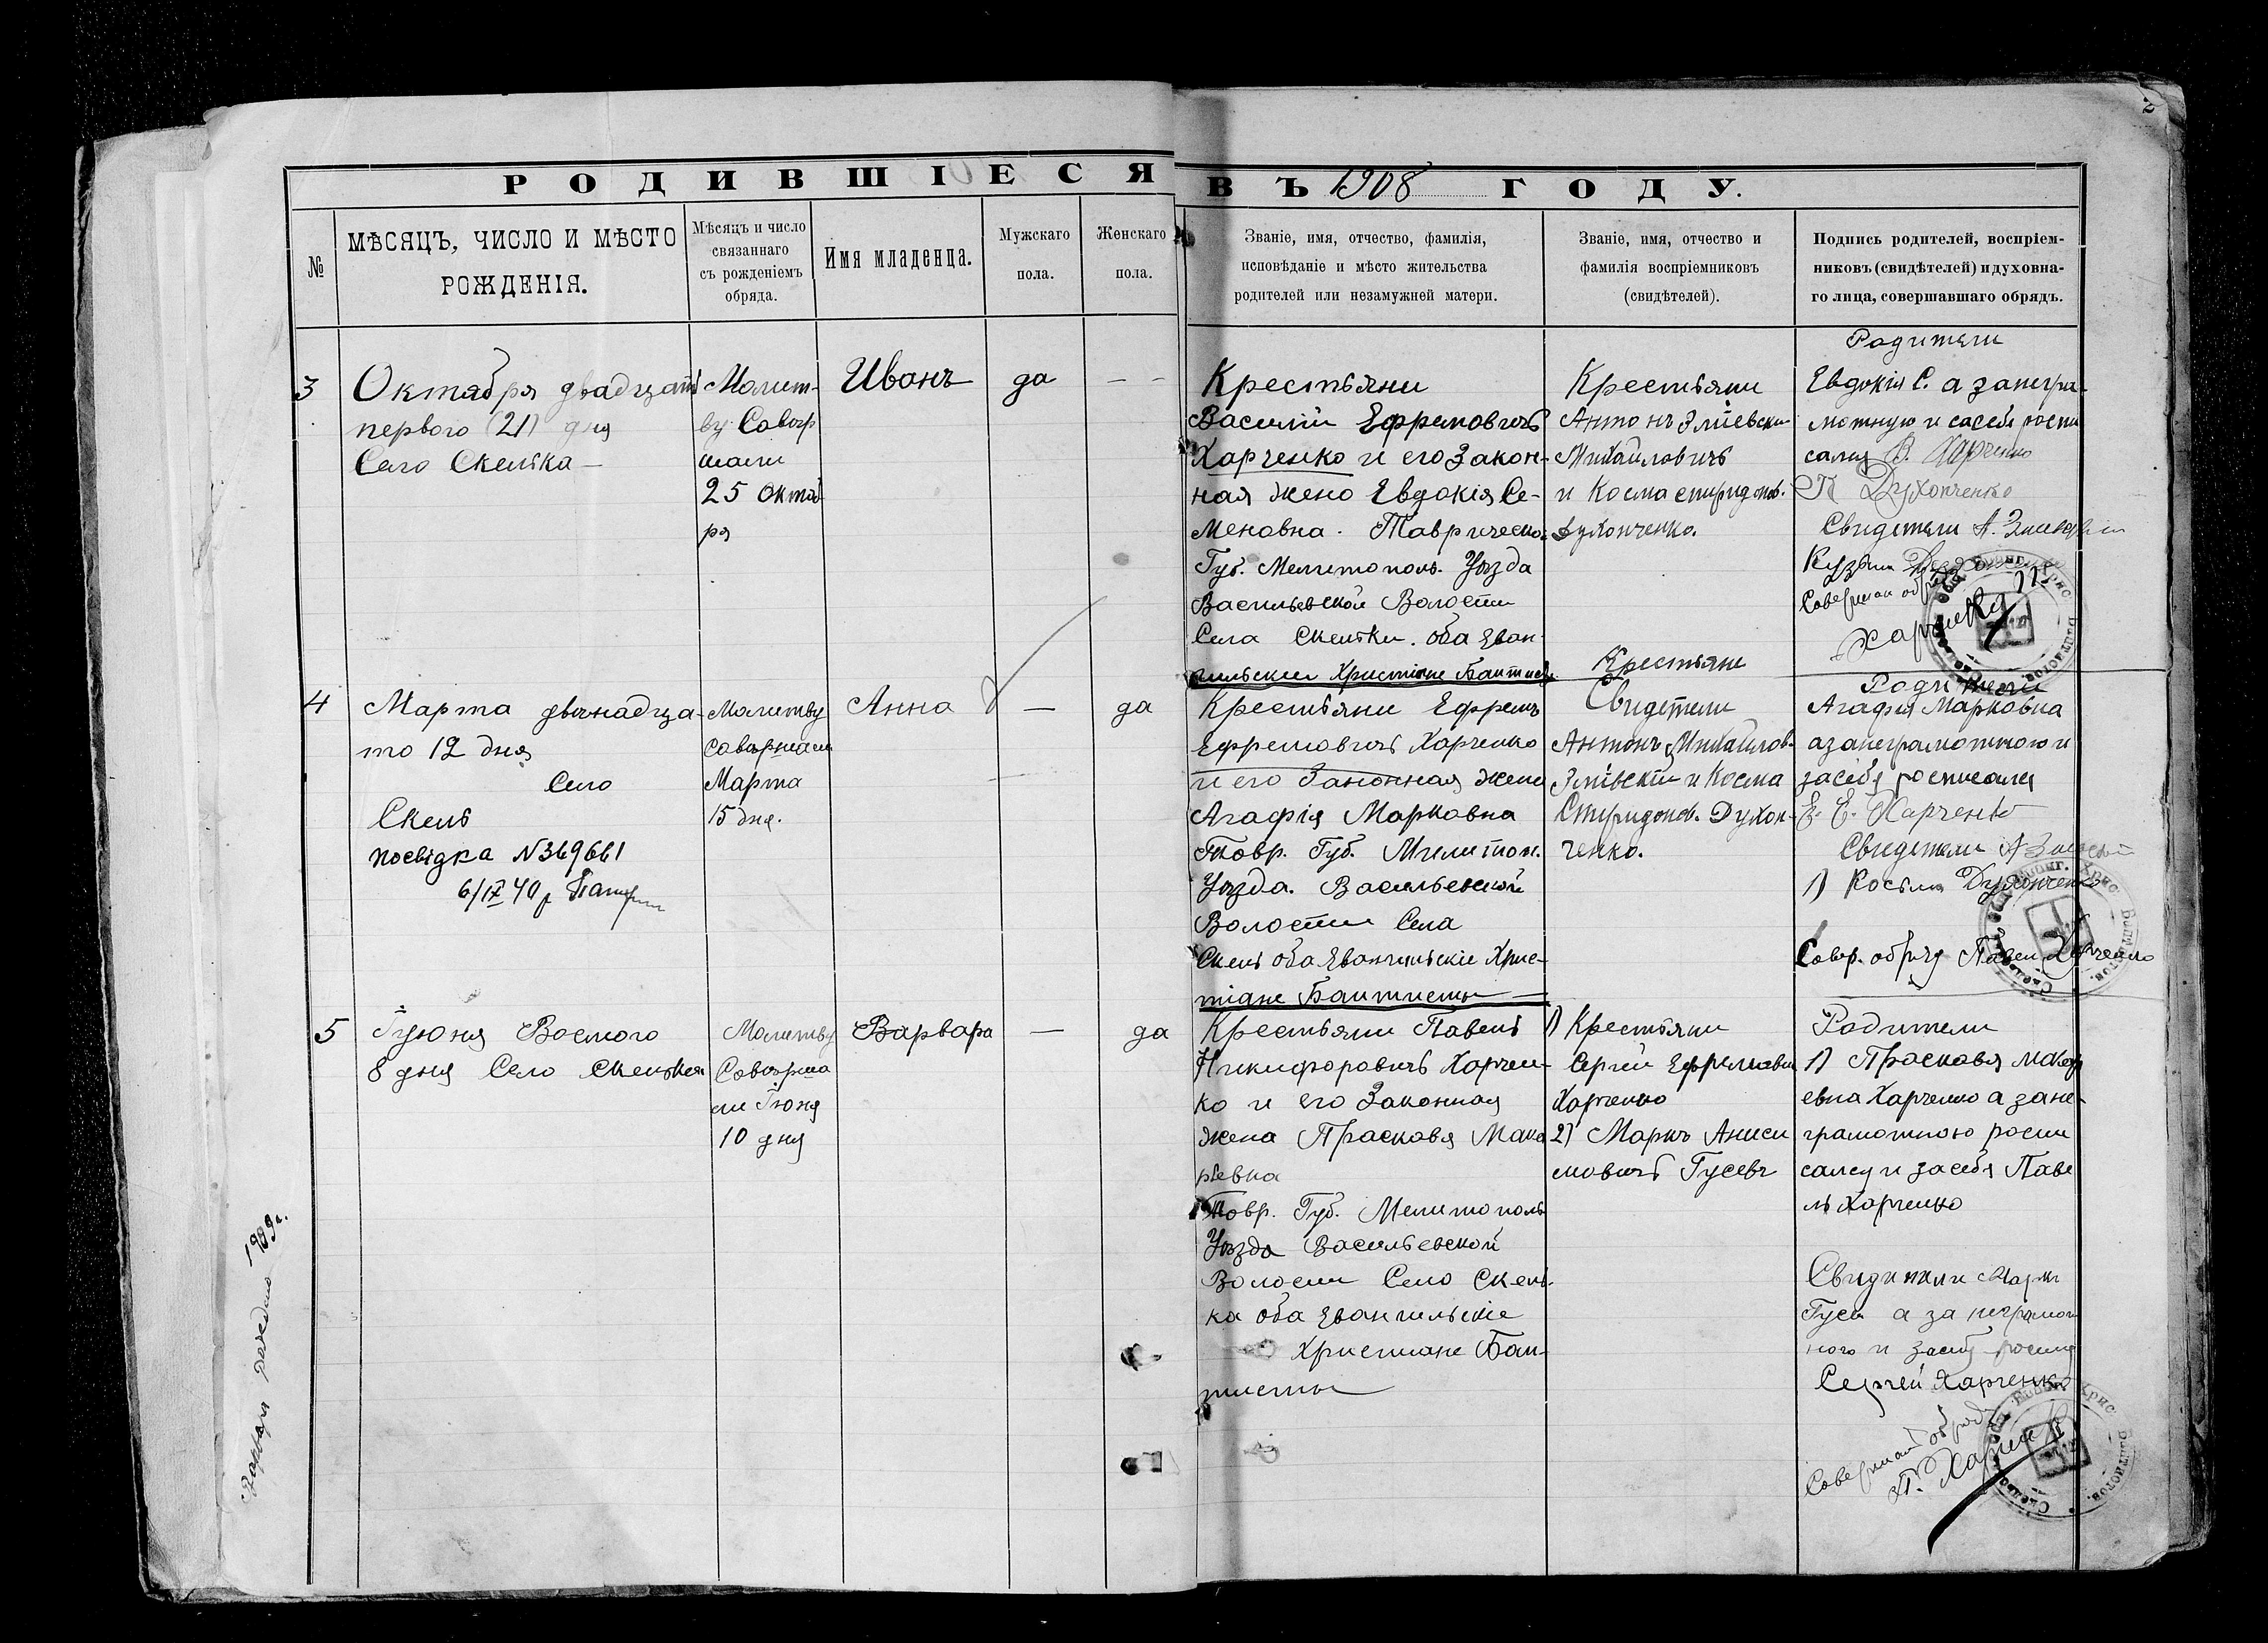 2
РОДИВШІЕСЯ ВЪ 1908 ГОДУ.
№
МѢСЯЦЪ, ЧИСЛО И МѢСТО
РОЖДЕНІЯ.
Мѣсяцъ и число
связаннаго
съ рожденіемъ
обряда.
Имя младенца.
Мужскаго
пола.
Женскаго
пола.
Званіе, имя, отчество, фамилія,
исповѣданіе и мѣсто жительства
родителей или незамужней матери.
Званіе, имя, отчество и
фамилія воспріемниковъ
(свидѣтелей).
Подпись родителей, воспріем-
никовъ (свидѣтелей) и духовна-
го лица, совершавшаго обрядъ.
3
Октября двадцать
первого (21) дня
Село Скелька —
Молит-
ву Совер
шали
25 Октяб
ря
Иванъ
да
— -
Крестьяни
Василій Ефремовичъ
Харченко и его Закон-
ная жено Евдокія Се-
меновна. Тавричиско.
Губ. Мелитополь. Уѣзда
Васильевской Волости
Села Скельки. оба Еван-
гильскии Христіяне Баптисты
Крестьяни
Антонъ Зміевски
Михайловичъ
и Косма спиридонов.
Духонченко.
Родители
Евдокія С. а занегра-
мотную и засебя роспи
салея В. Харченко
П Духонченко
Свидетели А. Змиевский
Кузьма
Совершал обряд
Харченко
4
Марта двенадца-
то 12 дня
Село
Скель
посвідка №369661
6/IX 40 р
Молитву
совершали
Марта
15 дня.
Анна
—
да
Крестьяни Ефремъ
Ефремовичъ Харченко
и его Законная жена
Агафія Марковна
Товр. Губ. Милитоп.
Уѣзда. Васильевской
Волости Села
Скель оба Евангильскіе Хрис-
тіане Баптисты —
Крестьяне
Свидетели
Антонъ Михайлов-
Змівскій и Косма
Спиридонов. Духон-
ченко.
Родители
Агафия Марковна
а занеграмотною и
засебя росписался
Е. Е. Харченко
Свидетели А Змиевский
1) Косьма Духонченко
Совер. обряд Павел Харченко
5
Іуюня Восмого
8 дня Село Скелька
Молитву
Соверша
ли Іюня
10 дня
Варвара
—
да
Крестьяни Павелъ
Никифоровичъ Харчен-
ко и его Законная
жена Прасковя Мака
рьевна
Товр. Губ. Мелитополь
Уѣзда Васильевской
Волости Село Скель-
ка оба Евангильскіе
Християне Бап-
тисты
1) Крестьяни
Сергей Ефремович
Харченко
2) Маркъ Аниси
мовичъ Гусевъ
Родители
1) Прасковя Макар
евна Харченко а зане-
грамотною роспи
салсу и засебя Паве
лъ Харченко
Свидители Маркъ
Гусев а за неграмот
ного и засебя роспис
Сергей Харченко
Совершал обряд
П. Харченко
Варвара рожедено 1909 г.